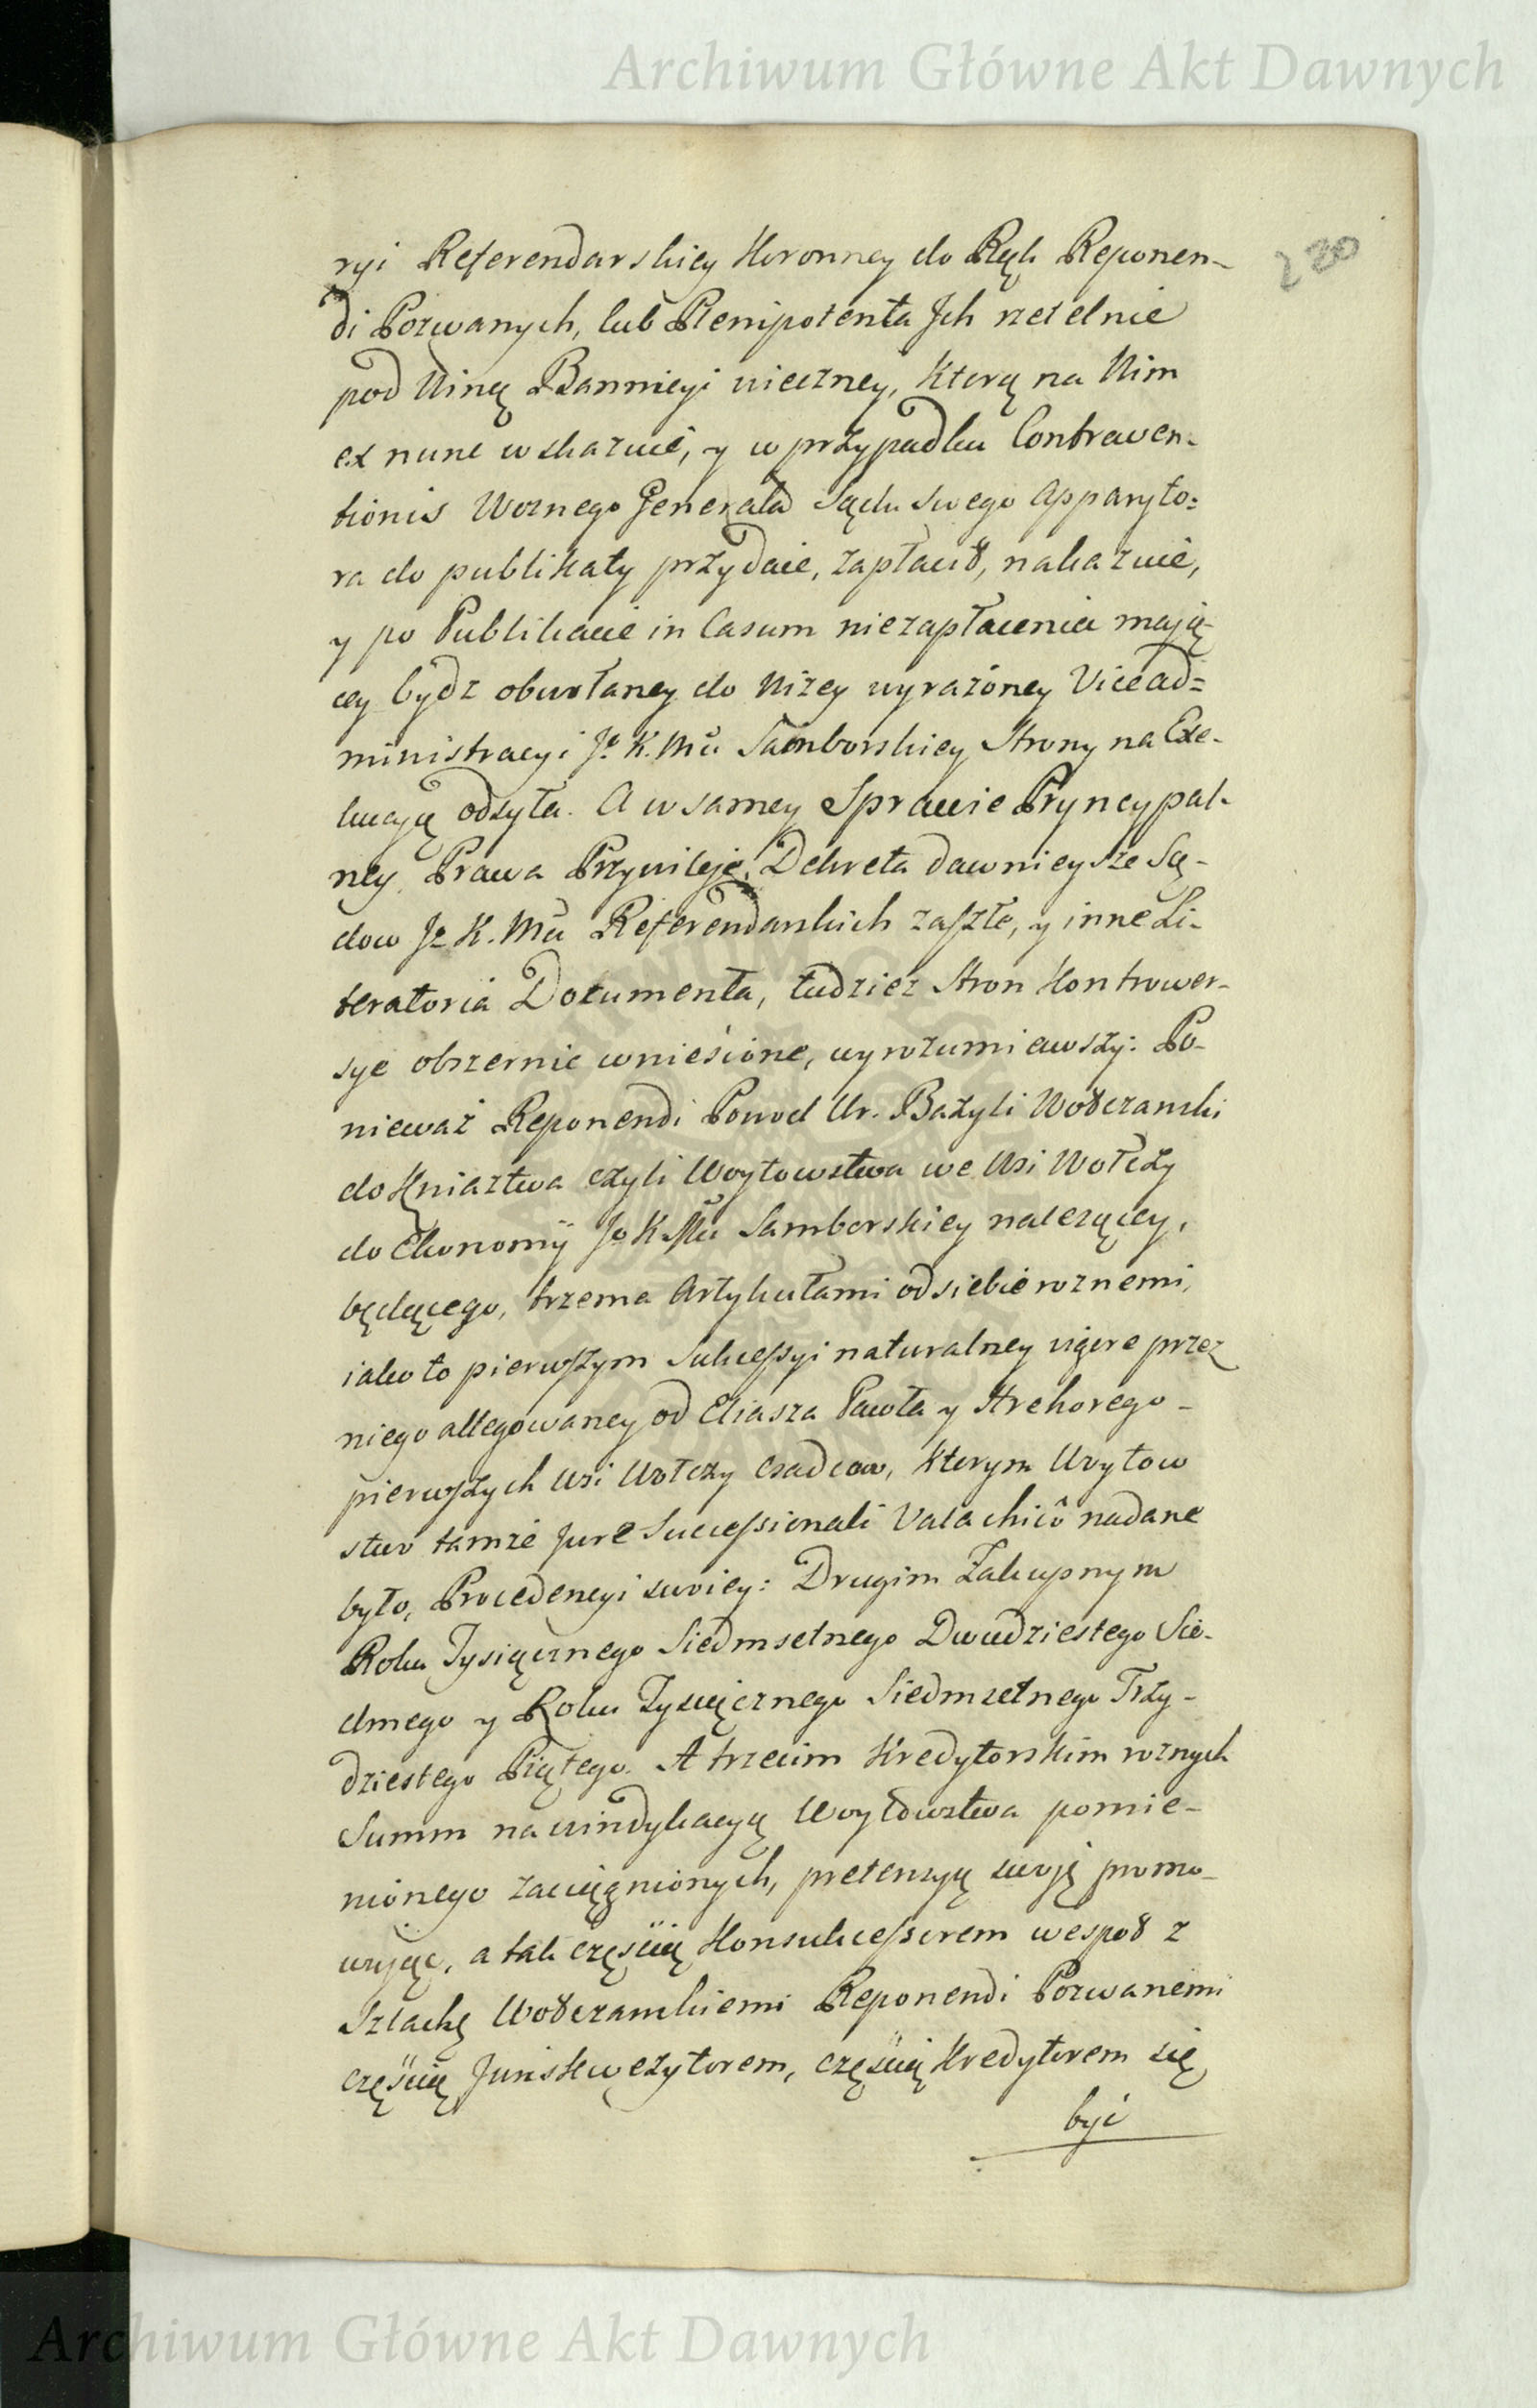 Archiwum Główne Akt Dawnych
220
ryi Referendarskiey Koronney do Rąk Reponen-
di Pozwanych, lub Plenipotenta Jch rzetelnie
pod Winą Bannicyi wieczney, Ktorą na Nim
ex nunc wskazuie, y w przypadku Contraven-
tionis Woznego Generała Sądu swego Apparyto=
ra do publikaty przydaie, zapłacić, nakazuie,
y po Publikacie in Casum niezapłacenia mają-
cey bydz obwołaney do Niżey wyrażoney Vicead=
ministracyi Jo K. Mci Samborskiey Strony na Exe-
kucyą odsyła. A w samey Sprawie Pryncypal-
ney Prawa Przywileje, Dekreta dawnieysze Są-
dow Jo K. Mci Referendarskich zaszłe, y inne Li-
teratoria Documenta, tudziez Stron Kontrower-
sye obszernie wniesione, wyrozumiawszy: Po-
nieważ Reponendi Powod Ur. Bazyli Wołczanski
do Kniaztwa czyli Woytowstwa we Wsi Wołczy
do Ekonomij Jo K Mci Samborskiey nalezącey,
będącego, trzema Artykułami od siebie roznemi,
iako to pierwszym Sukcessyi naturalney vigore przez
niego allegowaney od Eliasza Pawła y Hrehorego -
pierwszych Wsi Wołczy Osadcow, Ktorym Woytow
stwo tamże Jure Successionali Valachicô nadane
było, Procedencyi swoiey: Drugim Zakupnym
Roku Tysiącznego Siedmsetnego Dwudziestego Sio-
dmego y Roku Tysiącznego Siedmsetnego Trzy-
dziestego Piątego. A trzecim Kredytorskim roznych
Summ na windykacyą Woytowstwa pomie-
nionego zaciągnionych, pretensyą swoją promo-
wując, a tak częścią Konsukcessorem wespoł z
Szlachtą Wołczanskiemi Reponendi Pozwanemi
częścią Juriskwezytorem, częścią Kredytorem się
być
Archiwum Główne Akt Dawnych